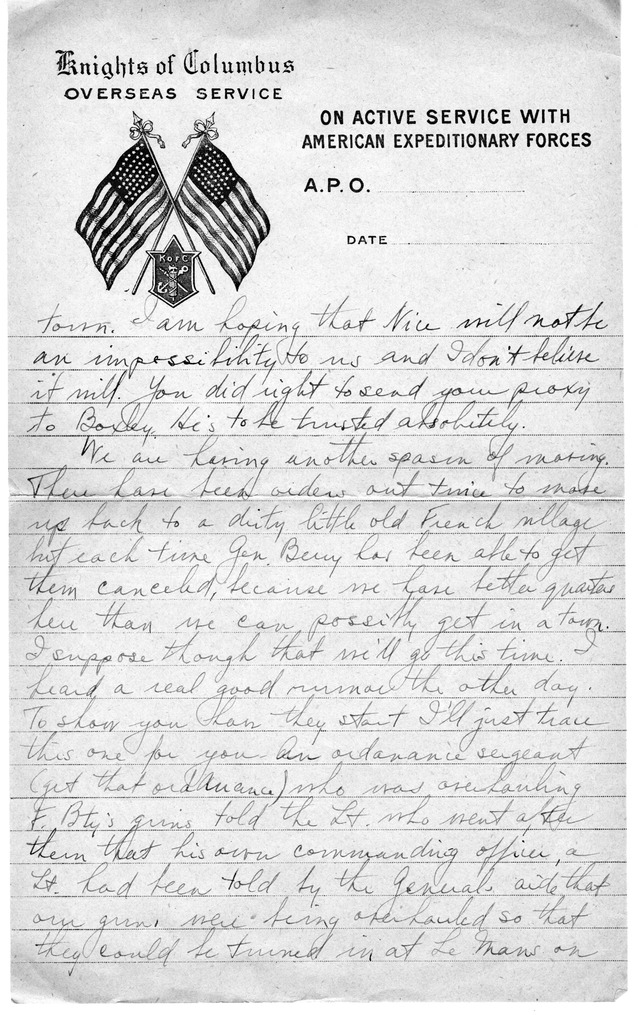 Knights of Columbus
OVERSEAS SERVICE
ON ACTIVE SERVICE WITH
AMERICAN EXPEDITIONARY FORCES
A.P.O.
DATE
K of C
town. I am hoping that Nice will not be
an impossibility to us and I don't believe
it will. You did right to send your proxy
to Boxley. He's to be trusted absolutely.
We are having another spasm of moving.
There have been orders out twice to move
us back to a dirty little old French village
but each time Gen. Berry has been able to get
them canceled, because we have better quarters
here than we can possibly get in a town.
I suppose though that we'll go this time. I
heard a real good rumor the other day.
To show you how they start I'll just trace
this one for you. An ordanance sergeant
(get that ordanance) who was overhauling
F. Bty's guns told the Lt. who went after
them that his own commanding officer, a
Lt. had been told by the Generals aide that
our guns were being overhauled so that
they could be turned in at Le Mans on